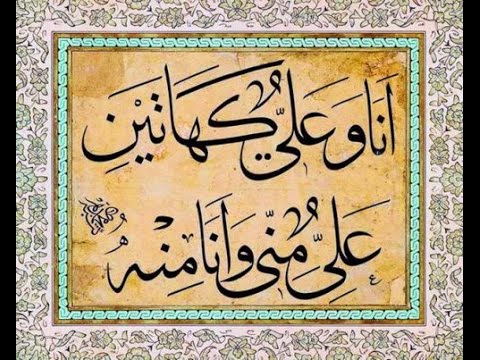 اَنَا وَ عَلِیٌّ کَهَاتَیْنِ
عَلِیٌّ مِنّی وَ اَنَا مِنْهُ